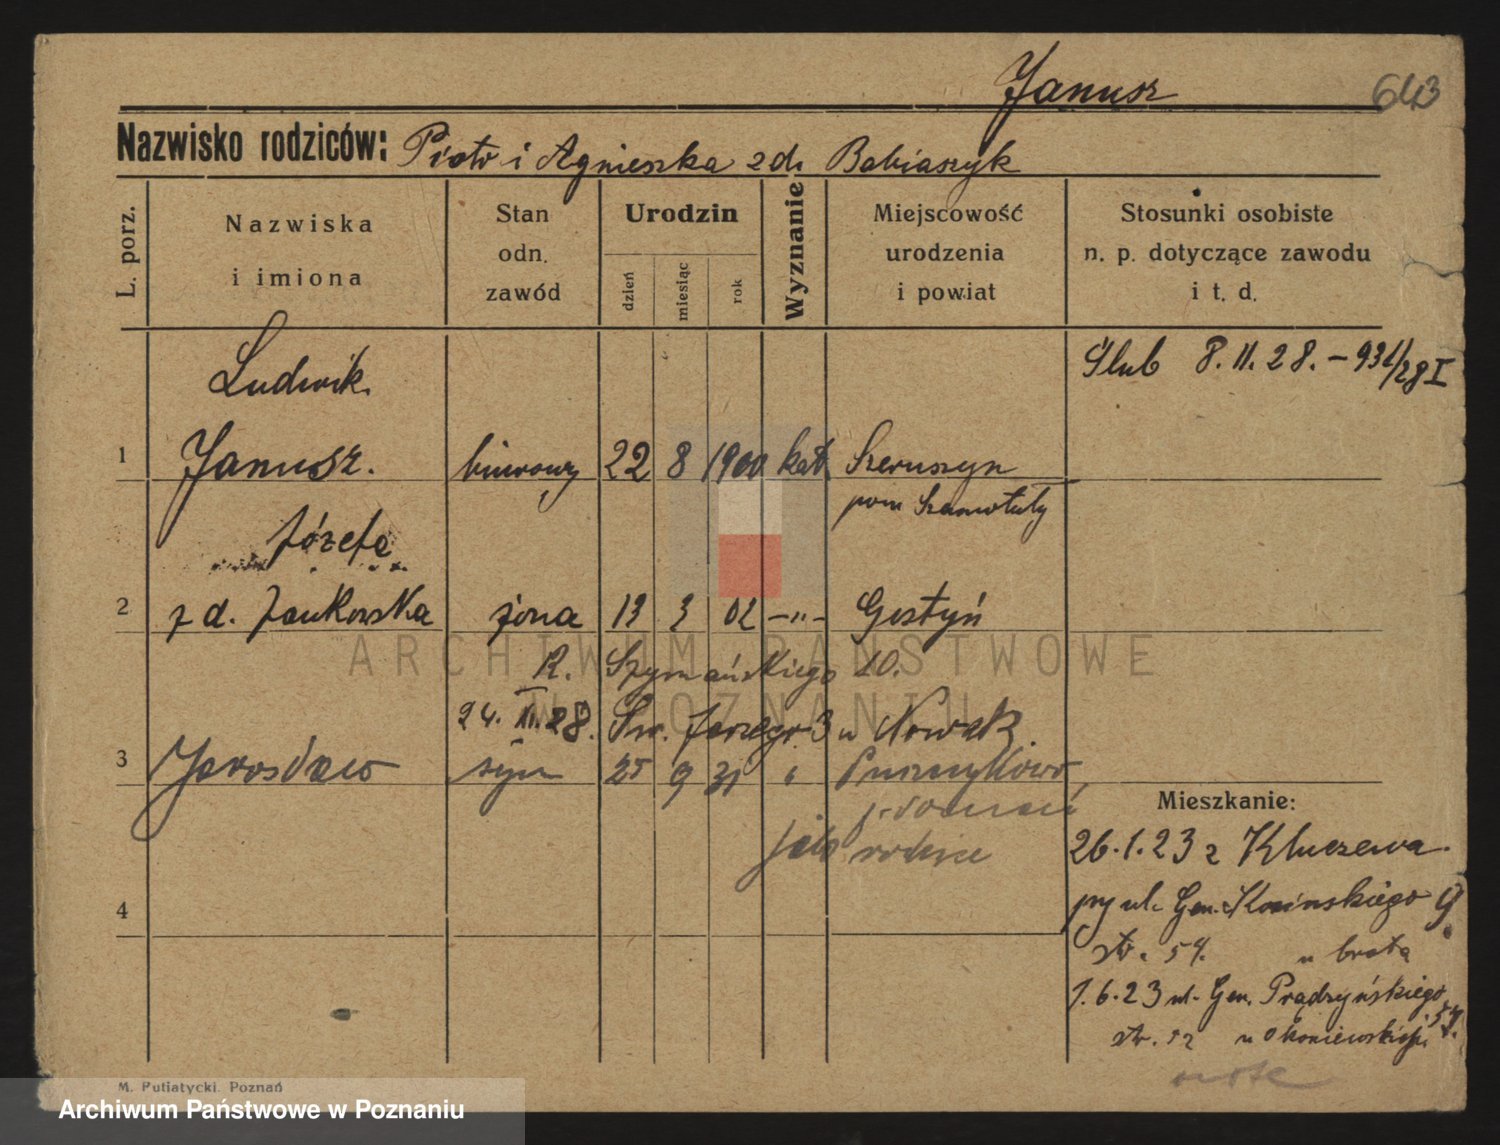 Janusz 643
Nazwisko rodziców: Piotr i Agnieszka z d. Babiaszyk
L. porz.
Nazwiska
i imiona
Stan
odn.
zawód
Urodzin
dzień
miesiąc
rok
Wyznanie
Miejscowość
urodzenia
i powiat
Stosunki osobiste
n. p. dotyczące zawodu
i t. d.
Ślub 8. 11. 28. - 931/28 I
Ludwik
1 Janusz. biurowy 22 8 1900 kat.
pow Szamotuły
Józefa
2 z d. Jankowska żona 13 3 02 —"— Gostyń
R. Szymańskiego 10.
24. 28. Św. Jerzego 3 u Nowak
3 Jarosław syn 25 9 31 " Puszczykowo
p. Poznań
jak rodzice
4
Mieszkanie:
26.1.23 z Kluczewa
przy ul. Gen. Kosińskiego 9
str. 54. u brata
1.6.23 ul. Gen. Prądzyńskiego 54.
str. 12
M. Putiatycki, Poznań
ARCHIWUM PAŃSTWOWE
W POZNANIU
Archiwum Państwowe w Poznaniu